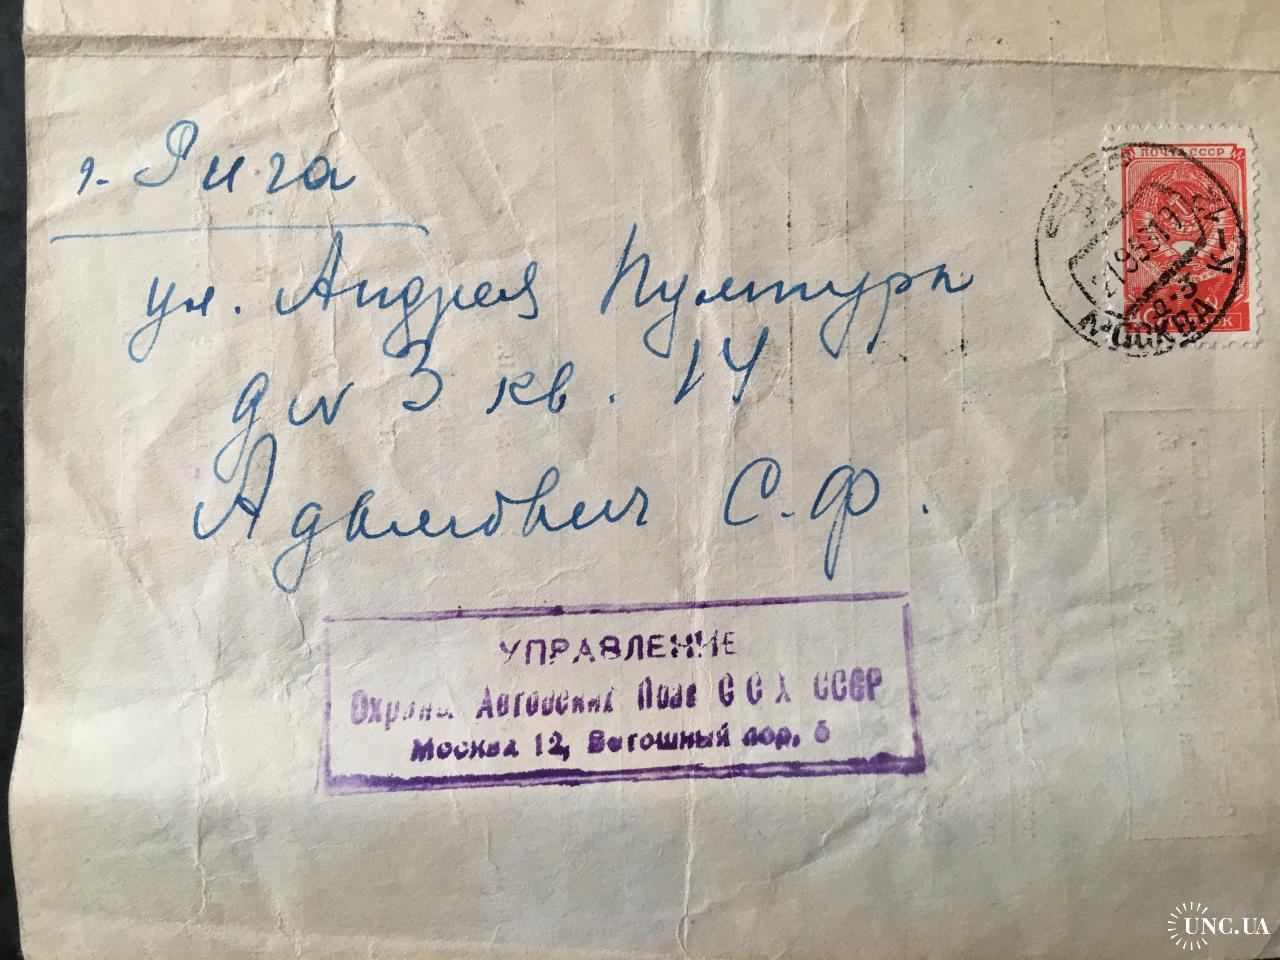 г. Рига
ул. Андрея Пумпура
д № 3 кв. 14
Адамович С. Ф.
ПОЧТА СССР
МОСКВА К-12
УПРАВЛЕНИЕ
Охраны Авторских Прав ССХ СССР
Москва 12, Ветошный пор. 5
UNC.UA